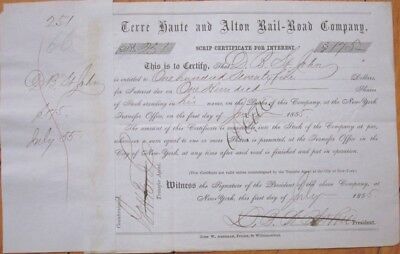 251
D. B. St John
$175
July 55
Terre Haute and Alton Rail-Road Company.
No. 251
SCRIP CERTIFICATE FOR INTEREST.
$175
This is to Certify, That D. B. St John
is entitled to One hundred Seventy five Dollars,
for Interest due on One Hundred Shares
of Stock standing in his name, on the Books of this Company, at the New-York
Transfer Office, on the first day of 1855
The amount of this Certificate is convertible into the Stock of the Company at par,
whenever it and one or more others are presented, equal to one or more Shares, at the Transfer Office, in
the City of New-York, at any time after said road is finished and put in operation.
(This Certificate not valid unless countersigned by the Transfer Agent at the City of New-York.)
Witness the Signature of the President of the above Company, at
New-York, this first day of July 1855
Countersigned,
Transfer Agent.
President.
John W. Amerman, Printer,